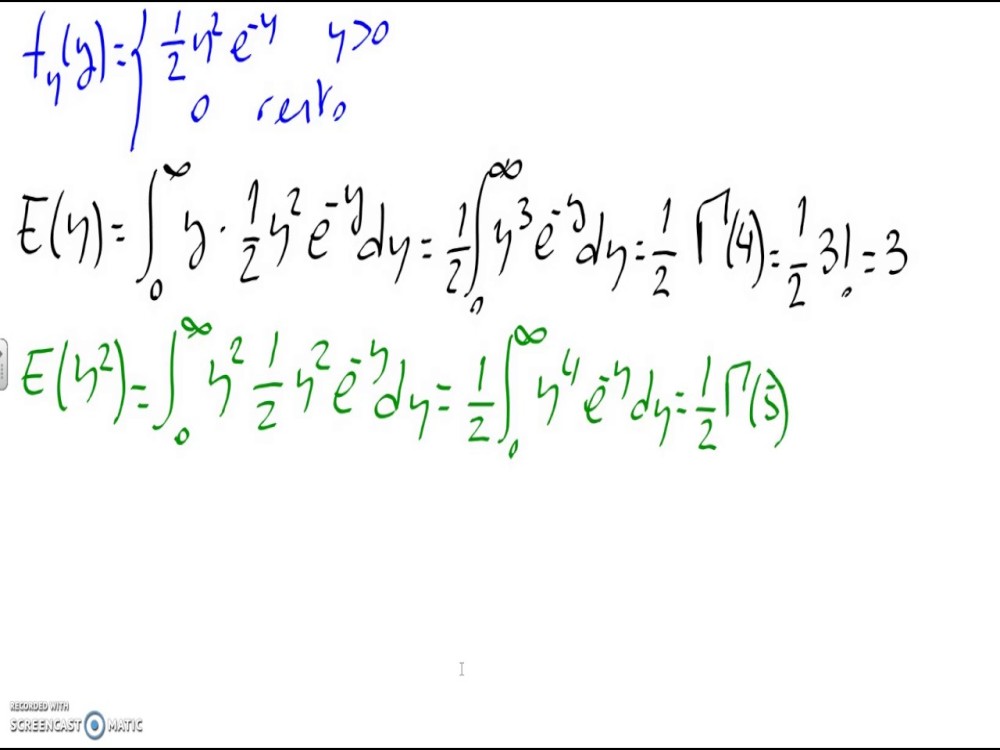 f_y(y) = { 1/2 y² e^-y y>0
0 resto
E(y) = ∫_0^∞ y · 1/2 y² e^-y dy = 1/2 ∫_0^∞ y³ e^-y dy = 1/2 Γ(4) = 1/2 3! = 3
E(y²) = ∫_0^∞ y² 1/2 y² e^-y dy = 1/2 ∫_0^∞ y⁴ e^-y dy = 1/2 Γ(5)
RECORDED WITH
SCREENCAST MATIC